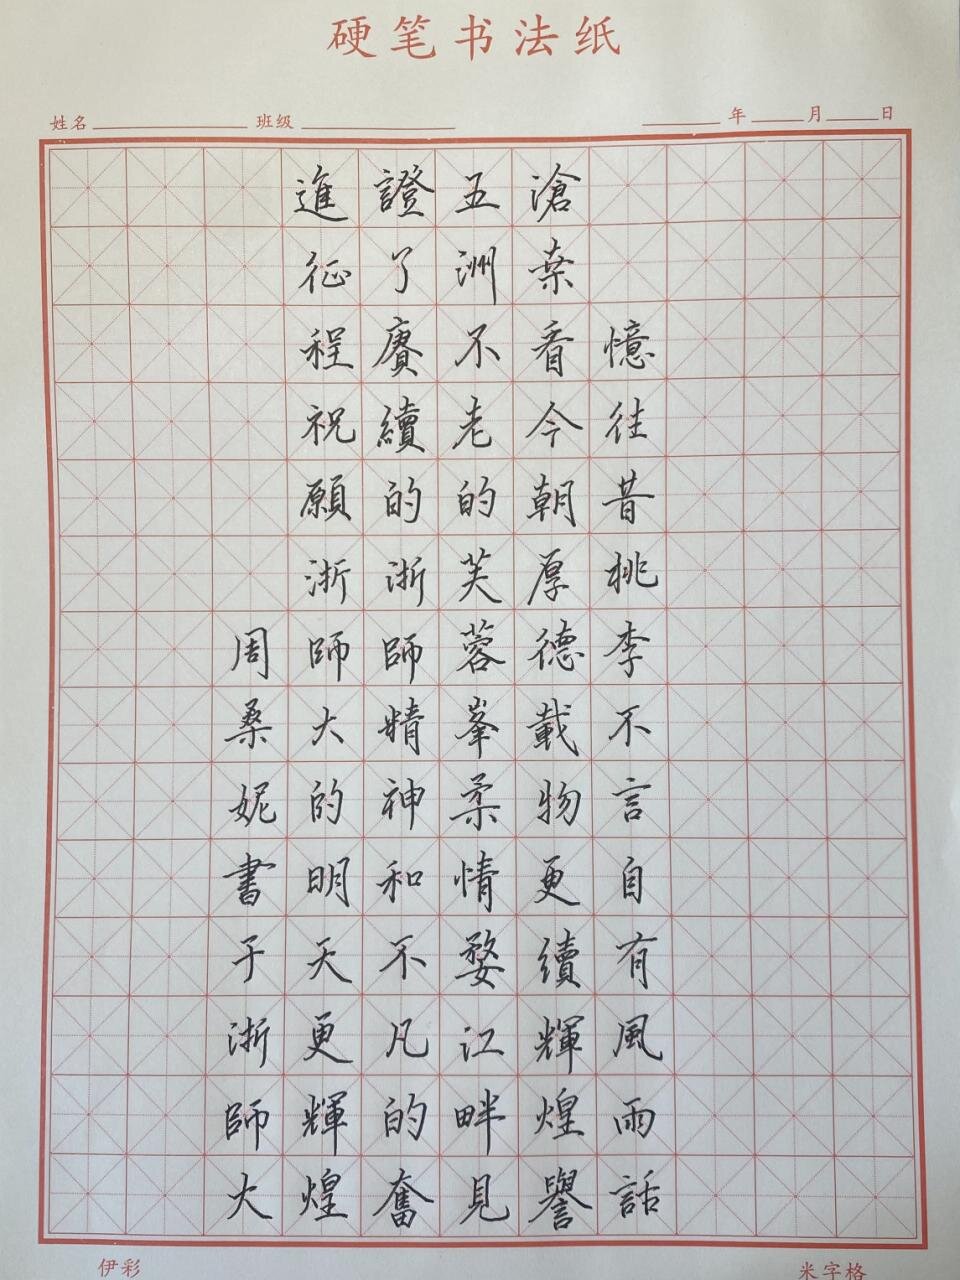 硬笔书法纸
姓名 班级 年 月 日
憶往昔桃李不言自有風雨話
滄桑看今朝厚德載物更續輝煌譽
五洲不老的芙蓉峯柔情婺江畔見
證了賡續的浙師精神和不凡的奮
進征程祝願浙師大的明天更輝煌
周桑妮書于浙師大
伊彩
米字格